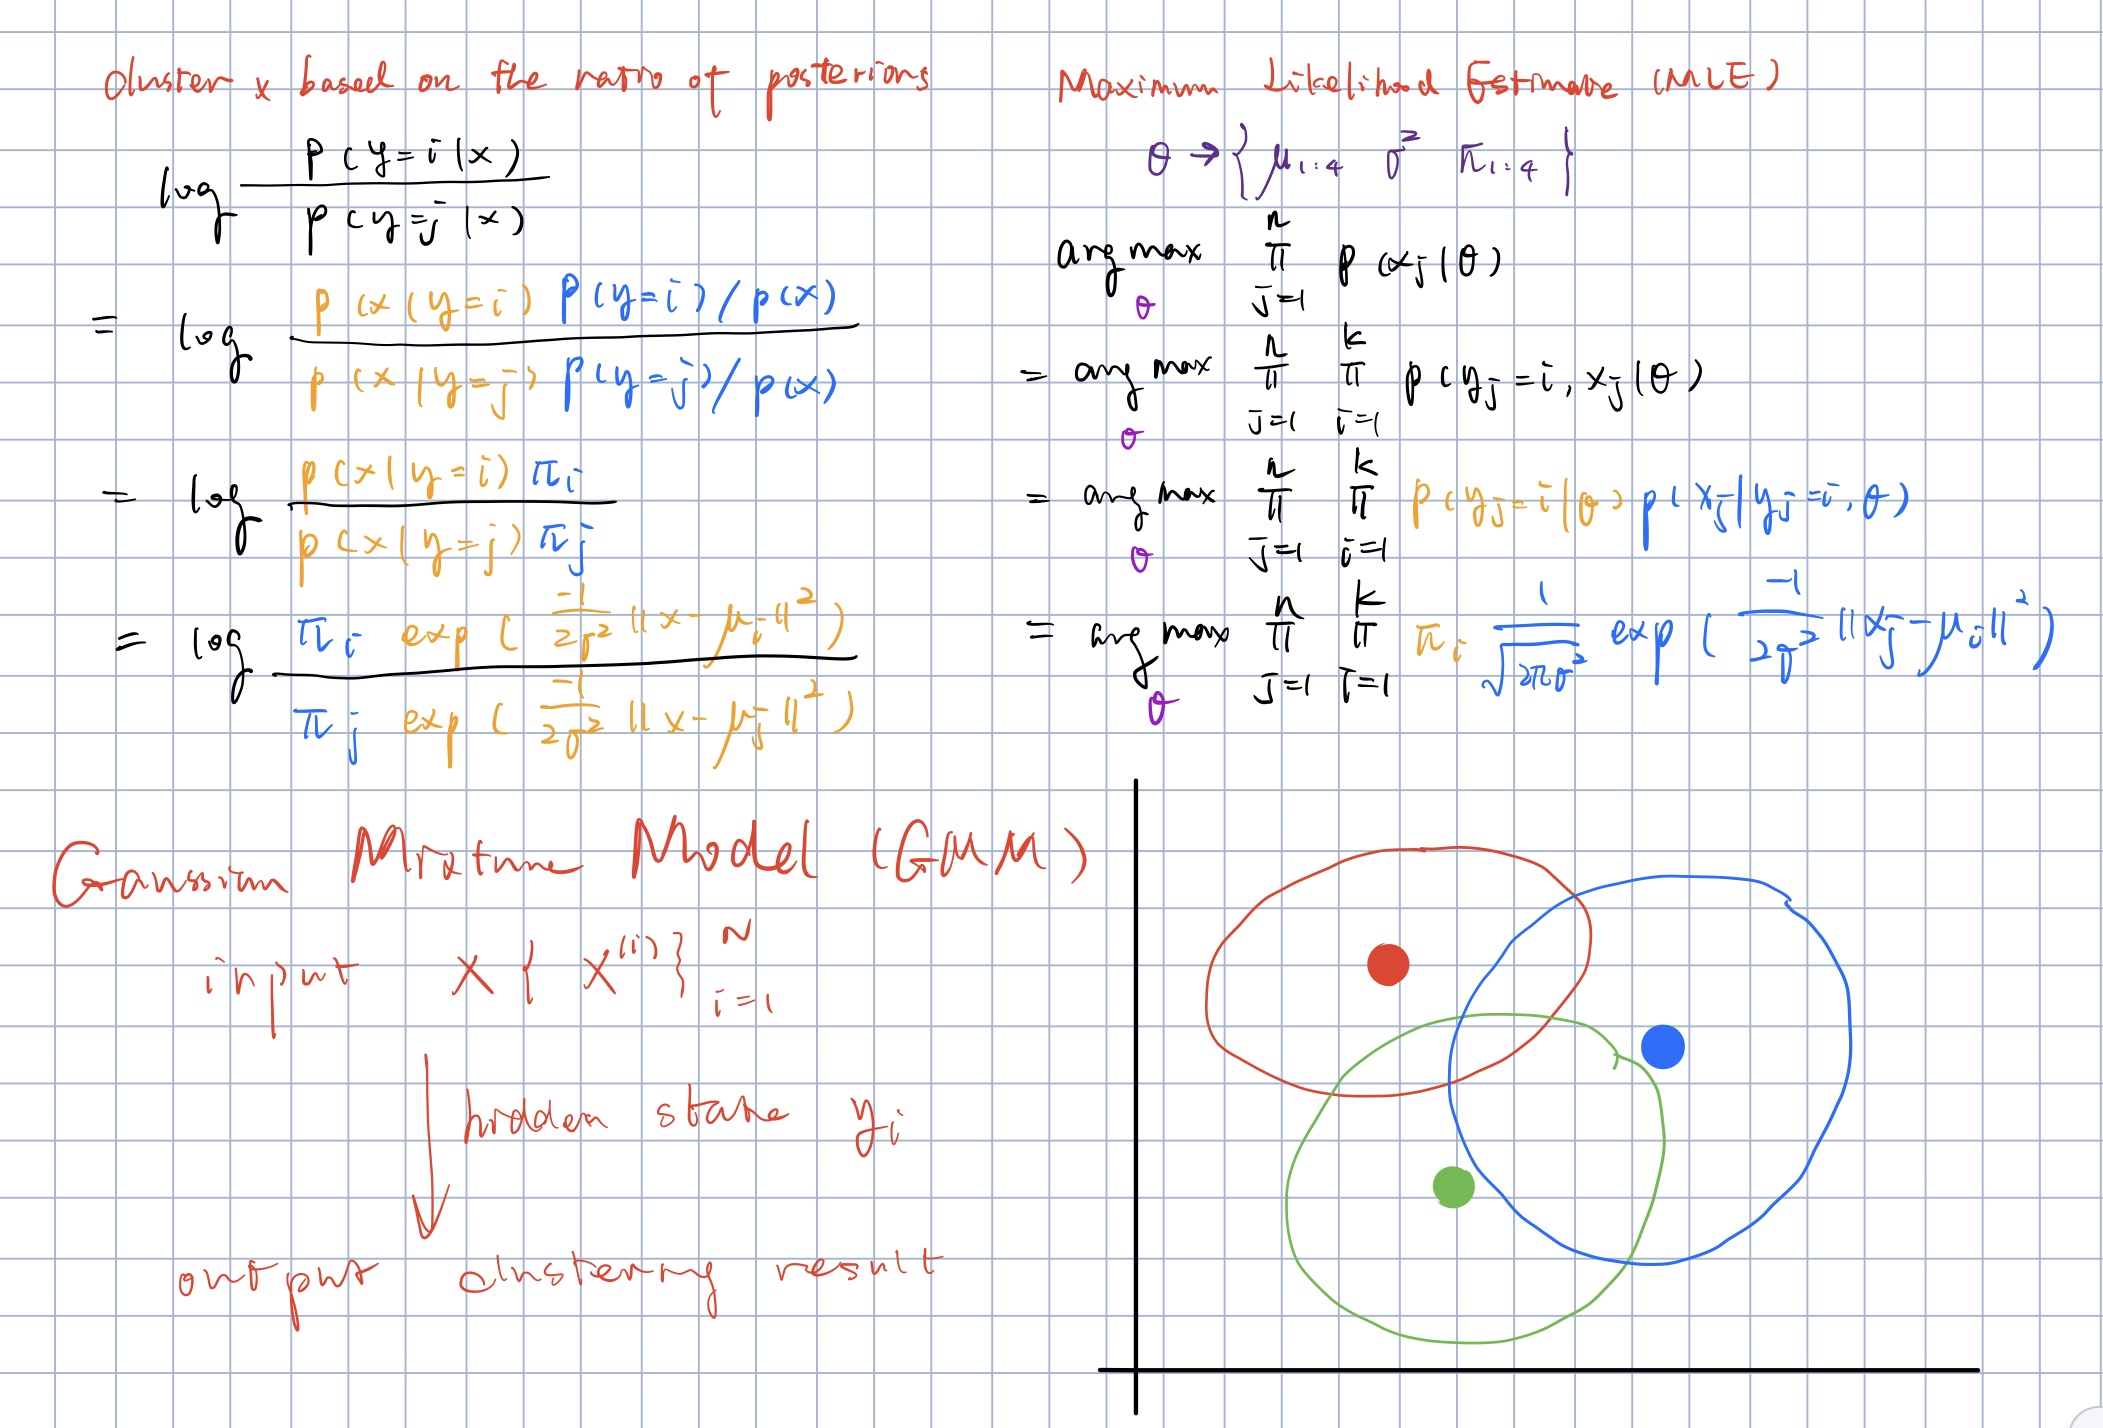 cluster x based on the ratio of posteriors
log P(y=i|x) / P(y=j|x)
= log P(x|y=i) P(y=i)/p(x) / P(x|y=j) P(y=j)/p(x)
= log P(x|y=i) πi / P(x|y=j) πj
= log πi exp( -1/2σ² ||x-μi||² ) / πj exp( -1/2σ² ||x-μj||² )
Maximum Likelihood Estimate (MLE)
θ → { μ1:4 σ² π1:4 }
arg max θ π j=1 n P(xj|θ)
= arg max θ π j=1 n π i=1 k P(yj=i, xj|θ)
= arg max θ π j=1 n π i=1 k P(yj=i|θ) P(xj|yj=i, θ)
= arg max θ π j=1 n π i=1 k πi 1/√2πσ² exp( -1/2σ² ||xj-μi||² )
Gaussian Mixture Model (GMM)
input X { X(i) } N i=1
hidden state yi
output clustering result